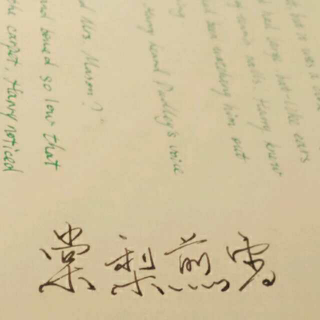 had large bat-like ears
of tennis balls. Harry knew
had been watching him out
Harry heard Dudley's voice
Mrs. Mason?"
bowed so low that
the carpet. Harry noticed
棠梨煎雪